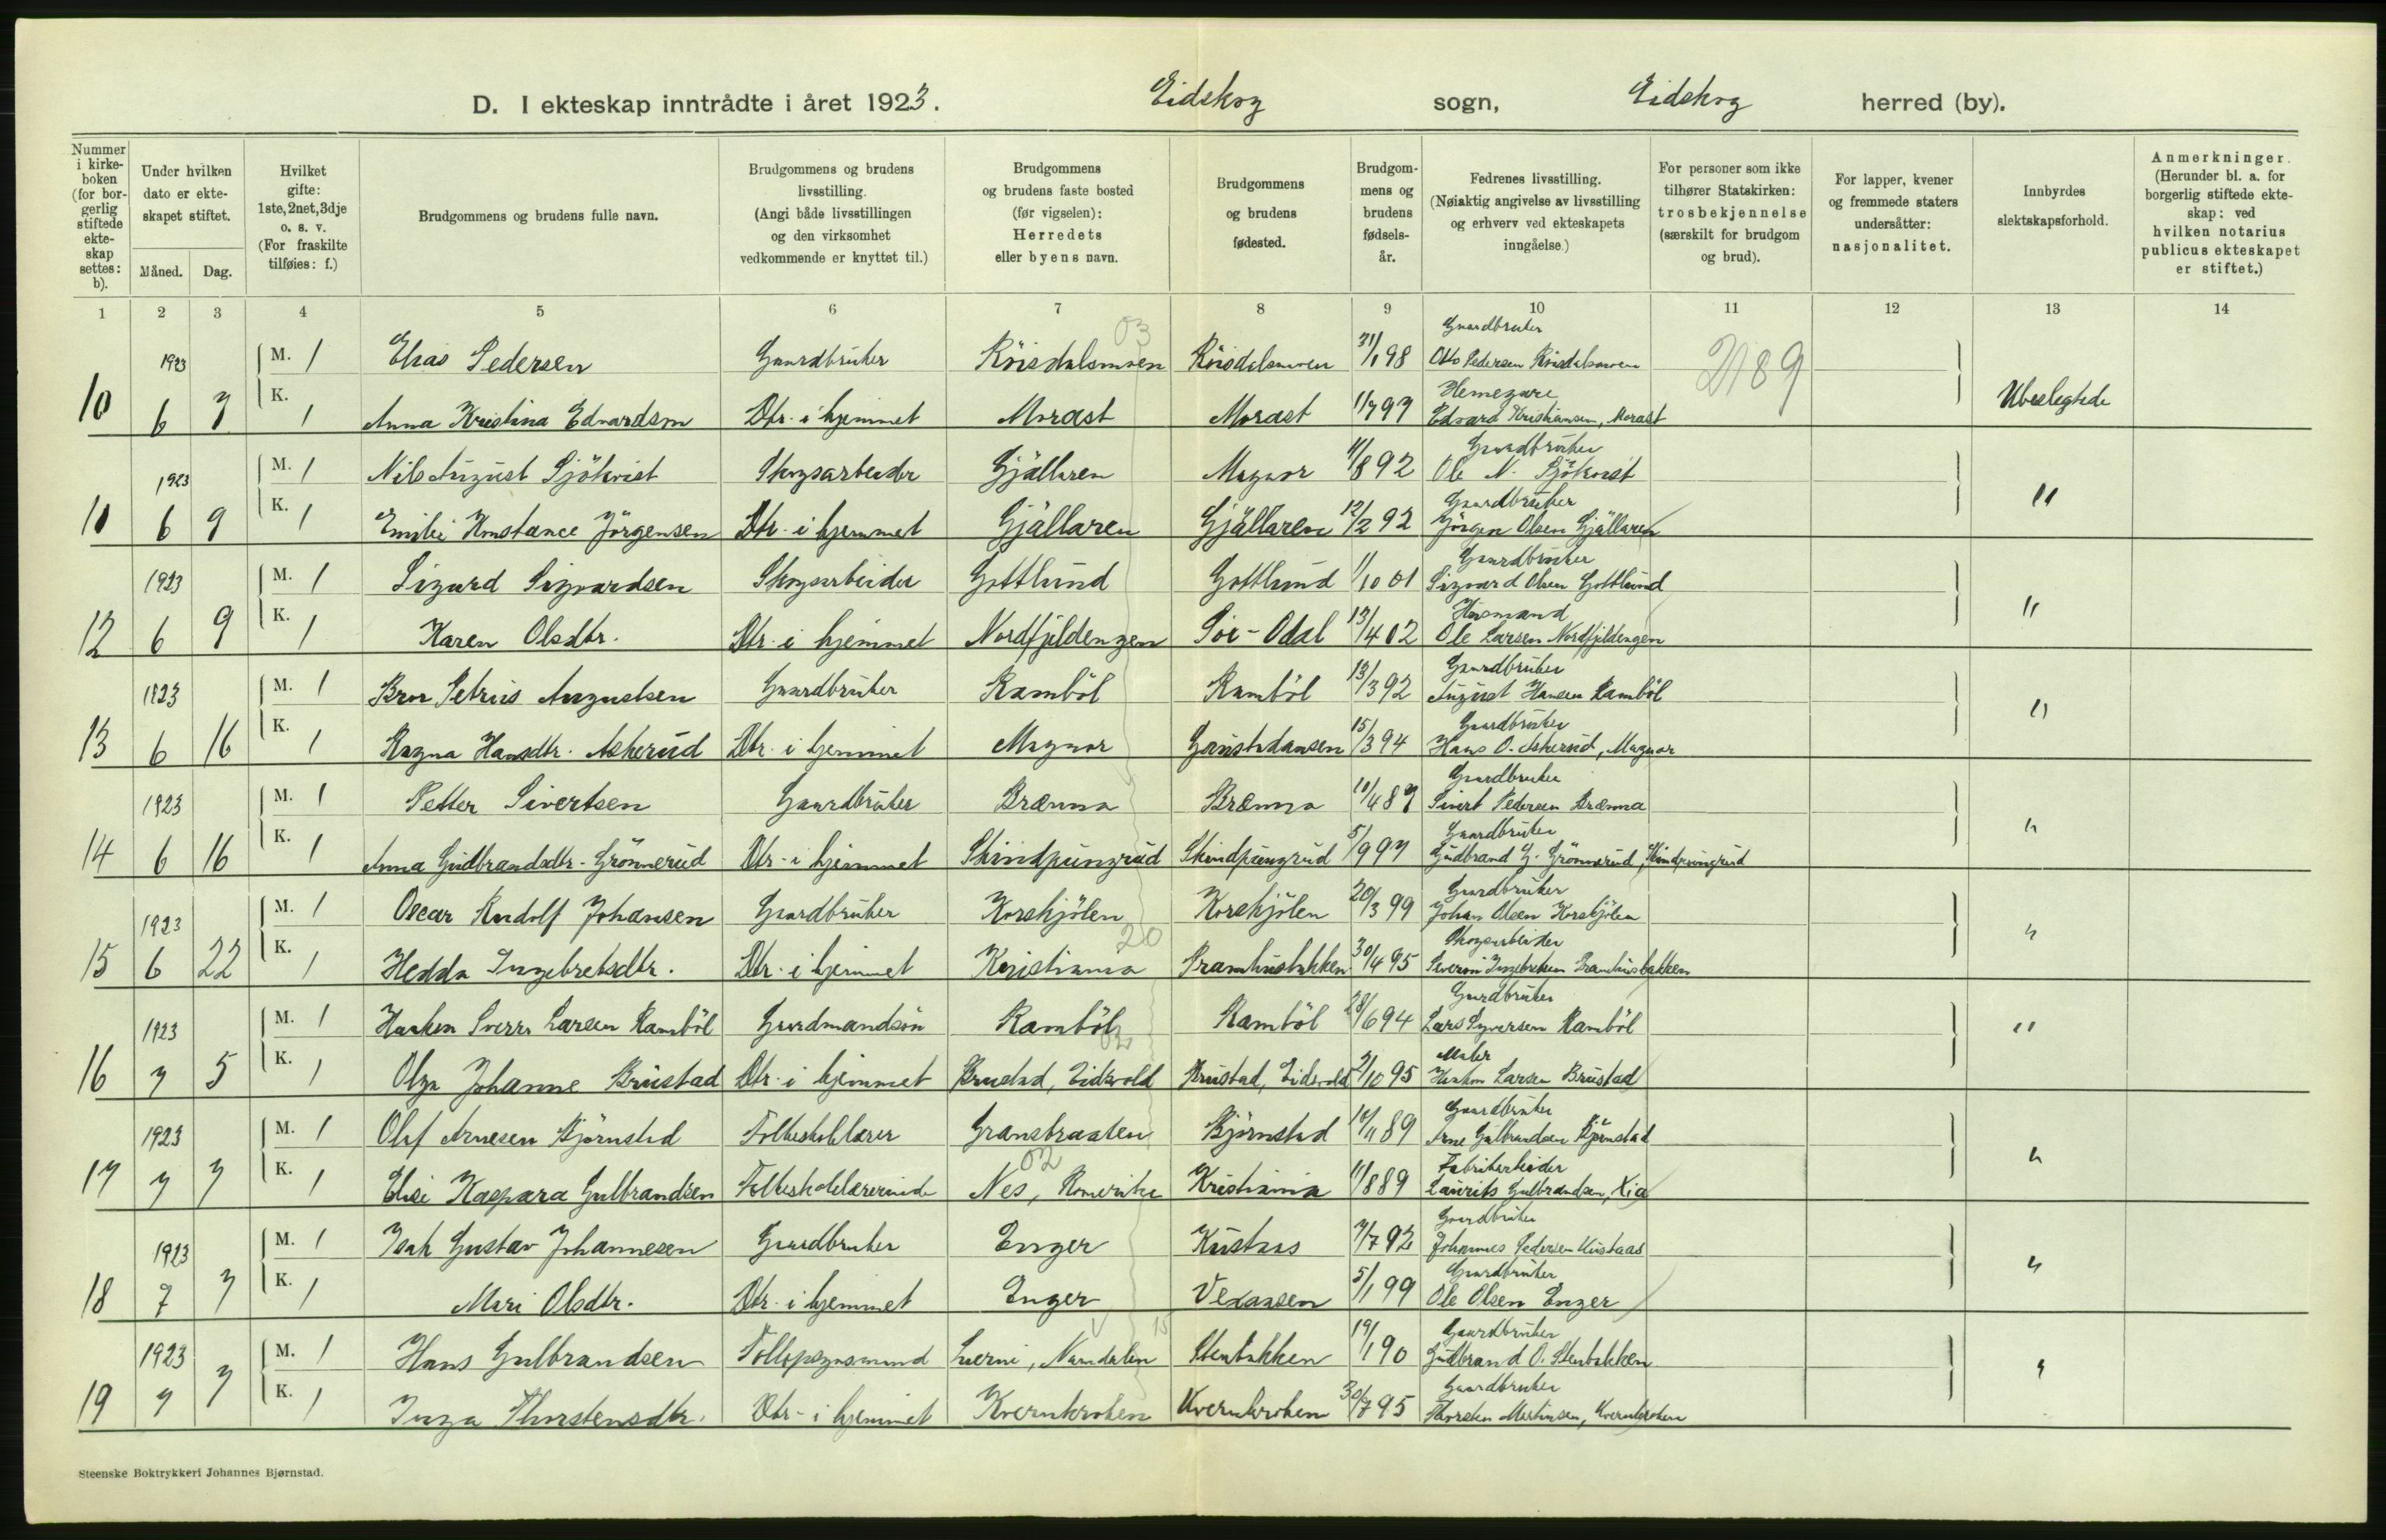 D. I ekteskap inntrådte i året 1923. Eidskog sogn, Eidskog herred (by).
Nummer i kirke- boken (for bor- gerlig stiftede ekte- skap settes: b).
Under hvilken dato er ekte- skapet stiftet.
Måned. Dag.
Hvilket gifte: 1ste, 2net, 3dje o. s. v. (For fraskilte tilføies: f.)
Brudgommens og brudens fulle navn.
Brudgommens og brudens livsstilling. (Angi både livsstillingen og den virksomhet vedkommende er knyttet til.)
Brudgommens og brudens faste bosted (før vigselen): Herredets eller byens navn.
Brudgommens og brudens fødested.
Brudgom- mens og brudens fødsels- år.
Fedrenes livsstilling. (Nøiaktig angivelse av livsstilling og erhverv ved ekteskapets inngåelse.)
For personer som ikke tilhører Statskirken: trosbekjennelse (særskilt for brudgom og brud).
For lapper, kvener og fremmede staters undersåtter: nasjonalitet.
Innbyrdes slektskapsforhold.
Anmerkninger. (Herunder bl. a. for borgerlig stiftede ekte- skap: ved hvilken notarius publicus ekteskapet er stiftet.)
1 2 3 4 5 6 7 8 9 10 11 12 13 14
03
Gaardbruker
1923 M. 1 Elias Pedersen Gaardbruker Röisdalsmoen Röisdalsmoen 31/1 98 Otto Pedersen Röisdalsmoen 2189
Hemegare
10 6 7 K. 1 Anna Kristina Edvardsen Dtr. i hjemmet Morast Morast 11/7 97 Edvard Kristiansen, Morast Ubeslegtede
Gaardbruker
1923 M. 1 Nils August Sjökvist Skogsarbeider Gjällaren Magnor 11/8 92 Ole N. Sjökvist
Gaardbruker
10 6 9 K. 1 Emilie Konstance Jörgensen Dtr. i hjemmet Gjällaren Gjällaren 12/2 92 Jörgen Olsen Gjällaren "
Gaardbruker
1923 M. 1 Sigurd Sigvardsen Skogsarbeider Gottlund Gottlund 1/10 01 Sigvard Olsen Gottlund
Husmand
12 6 9 K. 1 Karen Olsdtr. Dtr. i hjemmet Nordfjeldengen Sör-Odal 13/4 02 Ole Larsen Nordfjeldengen "
Gaardbruker
1923 M. 1 Bror Petrus Augustsen Gaardbruker Ramböl Ramböl 13/3 92 August Hansen Ramböl
Gaardbruker
13 6 16 K. 1 Ragna Hansdtr. Askerud Dtr. i hjemmet Magnor Gaustadaasen 15/3 94 Hans O. Askerud, Magnor "
Gaardbruker
1923 M. 1 Petter Sivertsen Gaardbruker Brænna Brænna 10/4 87 Sivert Pedersen Brænna
Gaardbruker
14 6 16 K. 1 Anna Gudbrandsdtr. Grönnerud Dtr. i hjemmet Skindpungrud Skindpungrud 5/9 97 Gudbrand G. Grönnerud, Skindpungrud "
Gaardbruker
1923 M. 1 Oscar Rudolf Johansen Gaardbruker Korskjölen Korskjölen 20/3 99 Johan Olsen Korskjölen
20
Skogsarbeider
15 6 22 K. 1 Hedda Ingebretsdtr. Dtr. i hjemmet Kristiania Pramhusbakken 30/4 95 Severin Ingebretsen Pramhusbakken "
Gaardbruker
1923 M. 1 Haakon Sverre Larsen Ramböl Gaardmandsön Ramböl Ramböl 28/6 94 Lars Syversen Ramböl
02
Maler
16 7 5 K. 1 Olga Johanne Brustad Dtr. i hjemmet Brustad, Eidsvold Brustad, Eidsvold 2/10 95 Haakon Larsen Brustad "
Gaardbruker
1923 M. 1 Olaf Arnesen Björnstad Folkeskolelærer Gransbraaten Björnstad 10/11 89 Arne Gulbrandsen Björnstad
02
Fabrikarbeider
17 7 7 K. 1 Elise Kaspara Gulbrandsen Folkeskolelærerinde Nes, Romerike Kristiania 11/8 89 Laurits Gulbrandsen, Kia "
Gaardbruker
1923 M. 1 Isak Gustav Johannesen Gaardbruker Enger Kustaas 7/7 92 Johannes Pedersen Kustaas
Gaardbruker
18 7 7 K. 1 Mari Olsdtr. Dtr. i hjemmet Enger Vexaasen 5/1 99 Ole Olsen Enger "
15
Gaardbruker
1923 M. 1 Hans Gulbrandsen Tollopsynsmand Lierne, Namdalen Stenbakken 19/1 90 Gudbrand O. Stenbakken
Gaardbruker
19 7 7 K. 1 Inga Thorstensdtr. Dtr. i hjemmet Kvernkroken Kvernkroken 30/7 95 Thorsten Martinsen, Kvernkroken "
Steenske Boktrykkeri Johannes Bjørnstad.